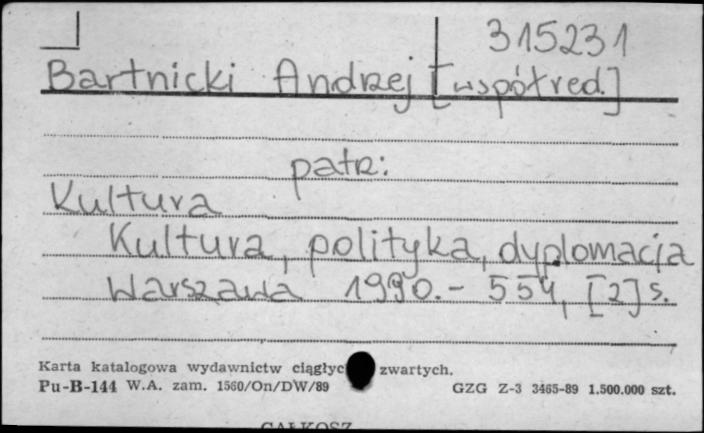 315231
Bartnicki Andrzej [współred.]
patrz:
Kultura
Kultura, polityka, dyplomacja
Warszawa 1990.- 554, [2] s.
Karta katalogowa wydawnictw ciągłyc zwartych.
Pu-B-144 W.A. zam. 1560/On/DW/89 GZG Z-3 3465-89 1.500.000 szt.